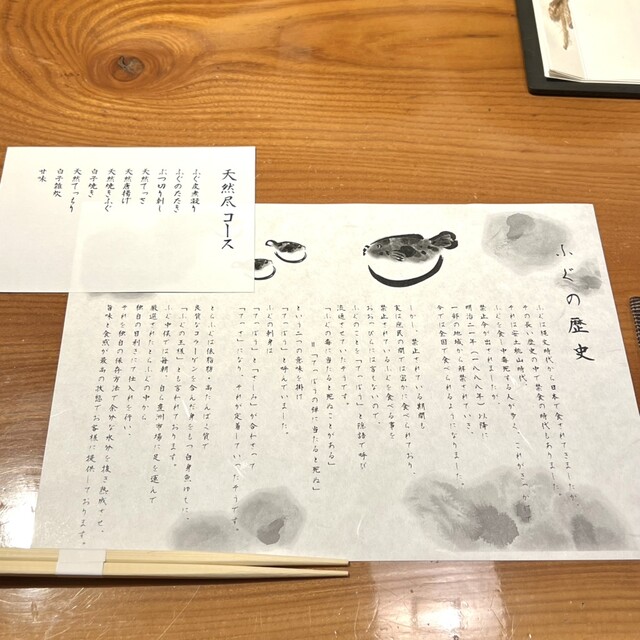 ふぐの歴史
ふぐは縄文時代から日本で食べられてきましたが、
その長い歴史の中で、禁食の時代もありました。
それは安土桃山時代。
ふぐを食し中毒死する人が多く、これが
禁止令が出されましたが、
明治二一年(一八八八年)以降に
一部の地域から解禁されていき、
今では全国で食べられるようになりました。
しかし、禁止されている期間も
実は庶民の間では密かに食べられており、
禁止されているふぐを食べる事を
おおっぴらには言えないので、
ふぐのことを「てっぽう」と隠語で呼び
流通させていたそうです。
※「てっぽうの弾に当たると死ぬ」
「ふぐの毒に当たると死ぬことがある」
という二つの意味を掛け
「てっぽう」と呼んでいました。
ふぐの刺身は
「てっぽう」と「さしみ」が合わさって
「てっさ」になり、それが定着していったそうです。
とらふぐは低脂肪で高たんぱく質で
良質なコラーゲンを含んだ身をもつ「白身魚」
「ふぐの王様」とも言われております。
ふぐ中様では毎朝、自ら豊洲市場に足を運んで
厳選されたとらふぐの中から
独自の目利きにて仕入れを行い、
それを独自の保存方法で余分な水分を抜き熟成させ、
旨味と食感が最高の状態でお客様へ提供しております。
天然尽コース
ふぐ皮煮凝り
ふぐのたたき
ぶつ切り刺し
天然てっさ
天然唐揚げ
天然焼きふぐ
白子焼き
天然てっちり
白子雑炊
甘味